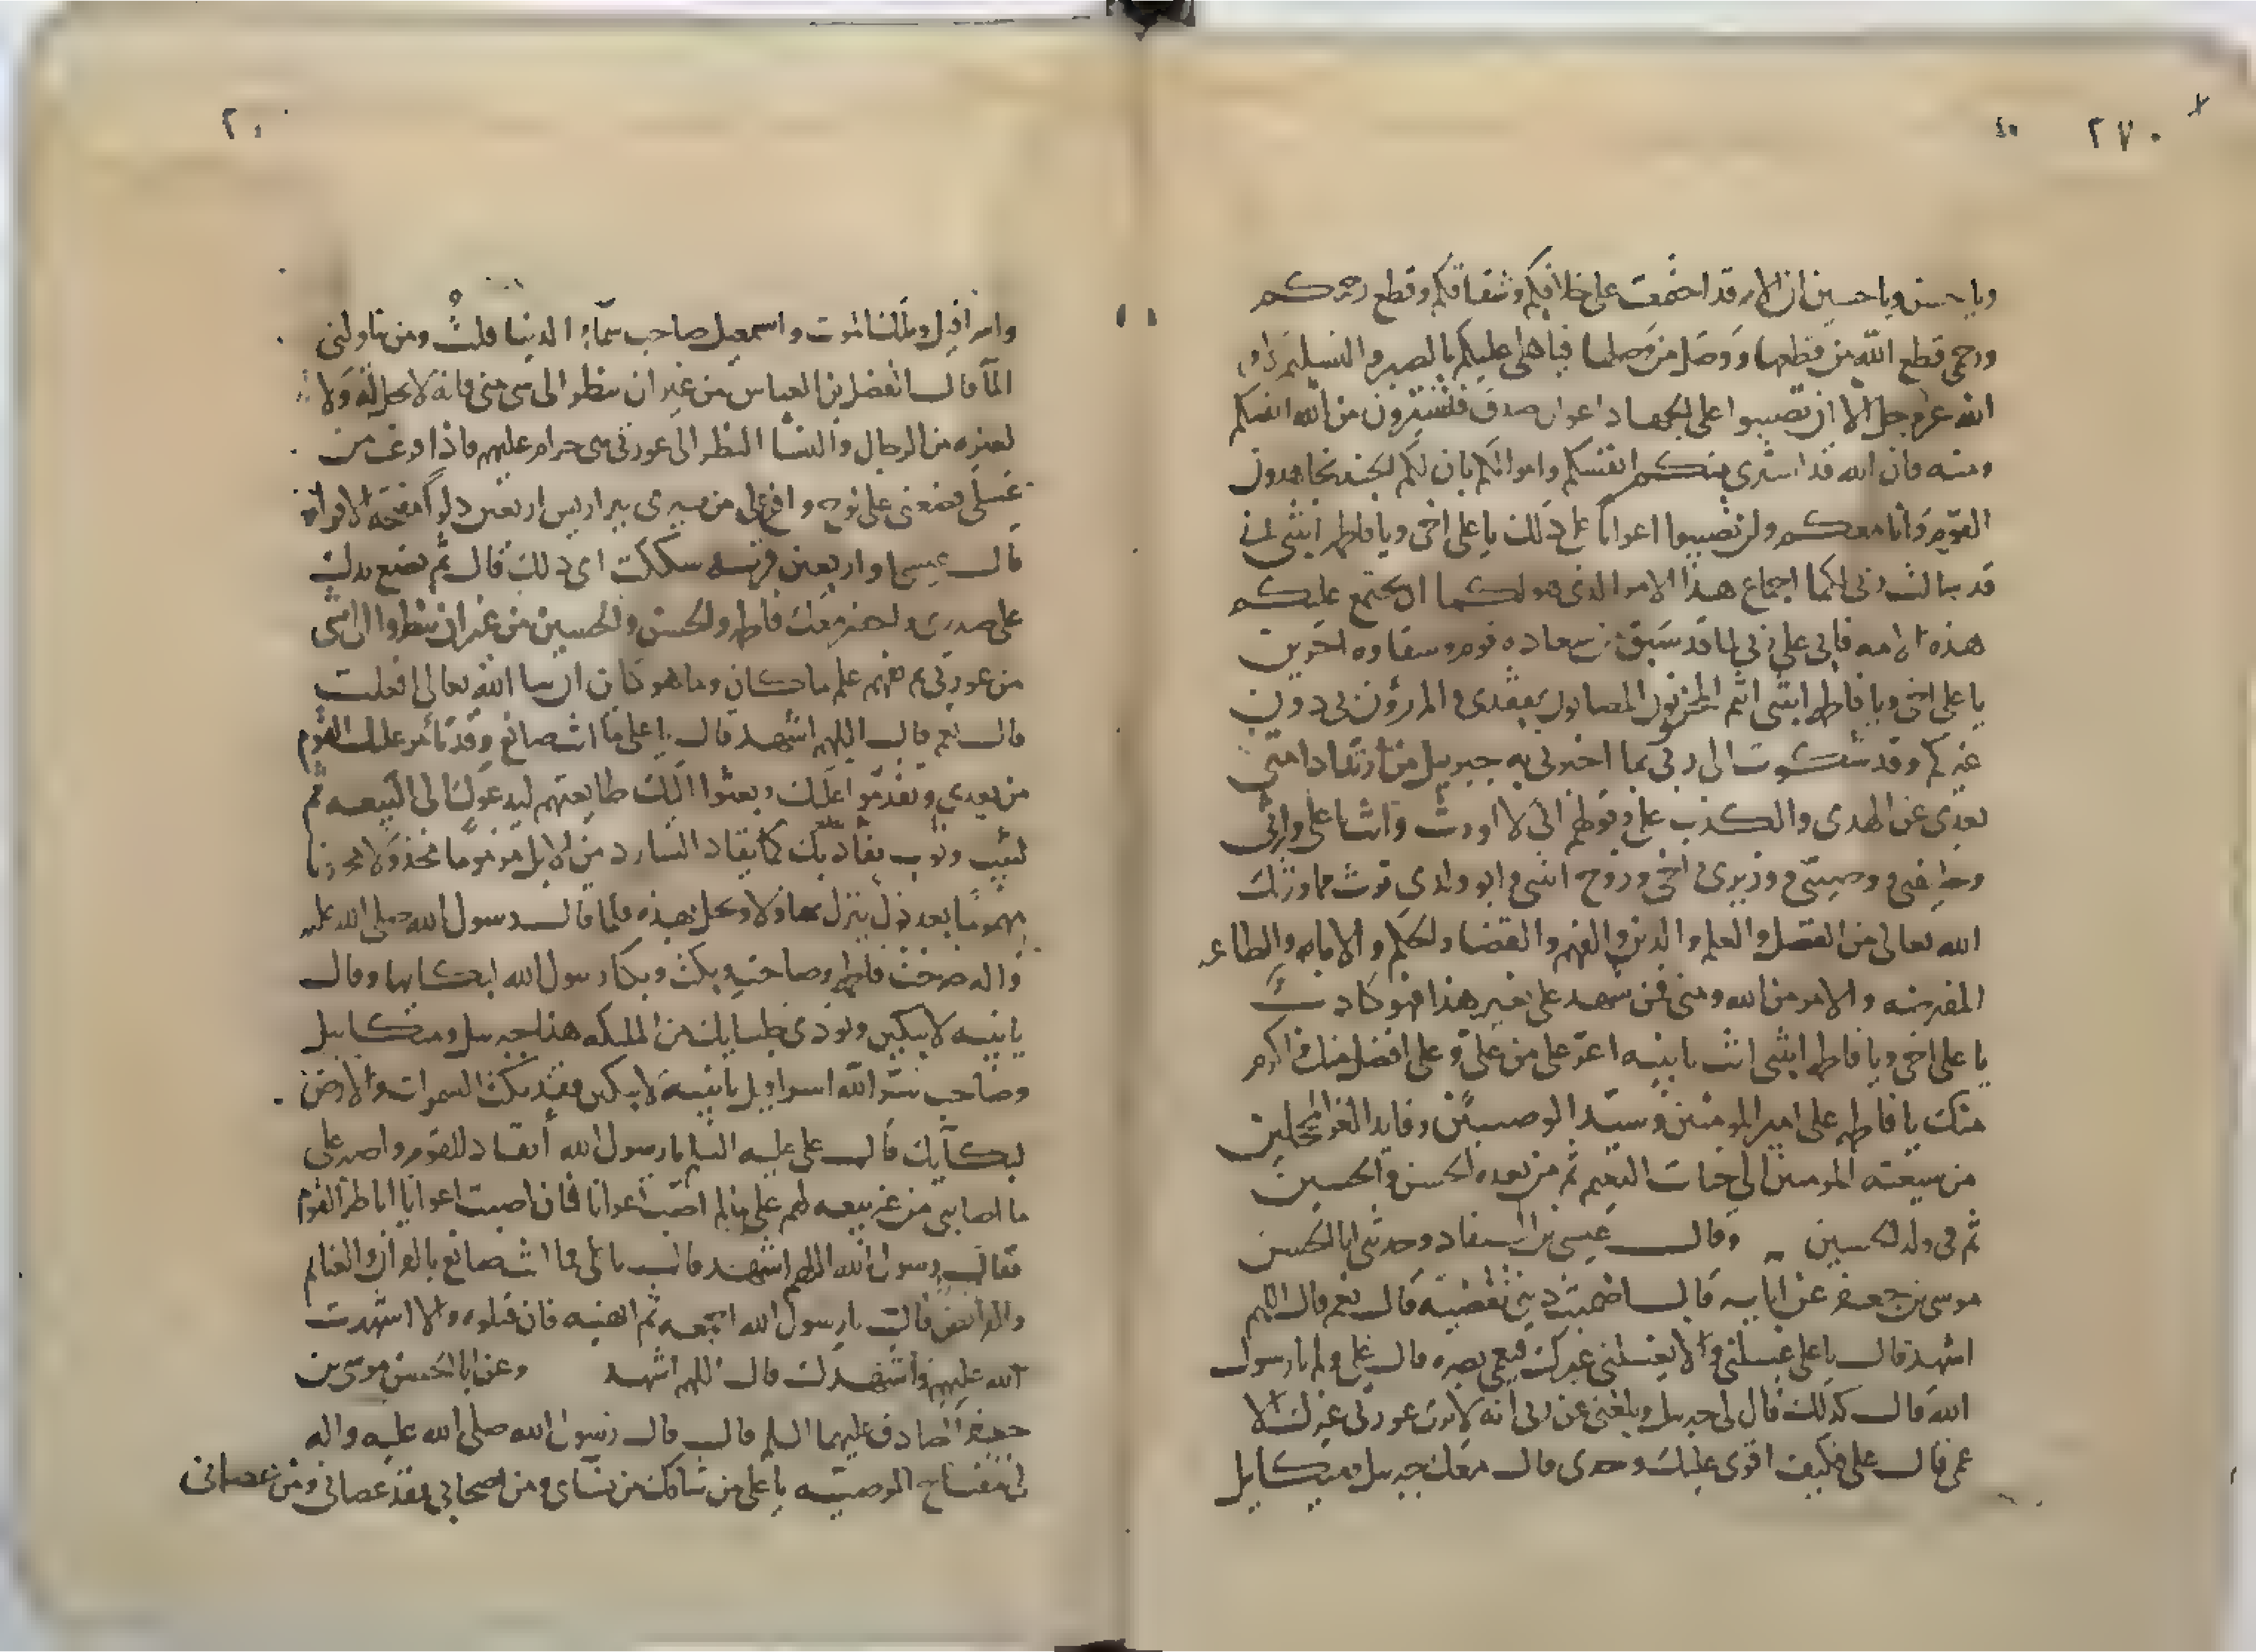 ٢٧٠
ويا حسن ويا حسين ان الامه قد اجتمعت على خلافكم وشقاقكم وقطع رحمكم
ورحمي قطع الله من قطعها ووصل من وصلها فيا هلى عليكم بالصبر والتسليم
الله عز وجل الا ان تصيبوا على الجهاد اعوان صدق فتشترون من الله انفسكم
ومنه فان الله قد اشترى منكم انفسكم واموالكم بان لكم الجنه تجاهدون
القوم وانا معكم ولن تصيبوا اعوانا على ذلك يا علي اخي ويا فاطمه ابنتي
قد سالت ربي لكما اجماع هذا الامر الذي هو لكما ان يجتمع عليكم
هذه الامه فابى علي ربي لما قد سبق من سعاده قوم وسقاوه اخرين
يا علي اخي ويا فاطمه ابنتي انتم المحزنون المصابون بفقدي
غيركم وقد شكوت الى ربي بما اخبرني به جبريل من ارتداد امتي
بعدي عن الهدى والكذب علي وقولهم اني لا اورث وانت يا علي وارثي
ووصيي ووزيري واخي وزوج ابنتي وابو ولدي
الله تعالى من الفضل والعلم والدين والفهم والقضا والحكم والامامه والطاعه
المفترضه والامر من الله ومني فمن شهد على بغير هذا فهو كاذب
يا علي اخي ويا فاطمه ابنتي انت يا بنيه اعز علي من علي وعلي افضل منك واكرم
منك يا فاطمه علي امير المومنين وسيد الوصيين وقايد الغر المحجلين
من شيعته المومنين الى جنات النعيم ثم من بعده الحسن والحسين
ثم في ولد الحسين وقال عيسى بن المستفاد وحدثني ابا الحسن
موسى بن جعفر عن ابايه قال اضمنت ديني تقضيه قال نعم قال اللهم
اشهد قال يا علي غسلني ولا يغسلني غيرك فيعمى بصره قال علي ولم يا رسول
الله قال كذلك قال لي جبريل وبلغني عن ربي انه لا يرى عورتي غيرك الا
عمي قال علي فكيف اقوى عليك وحدي قال معك جبريل وميكايل
واسرافيل وملك الموت واسمعيل صاحب سماء الدنيا قلت ومن يناولني
الماء قال الفضل بن العباس من غير ان ينظر الى شي مني فانه لا يحل له ولا
لغيره من الرجال والنسا النظر الى عورتي هي حرام عليهم فاذا فرغت من
غسلي فضعني على لوح وافرغ علي من بيري بير اريس اربعين دلوا مفتحه الافواه
قال عيسى او اربعين قربه سككت اي ذلك قال ثم تضع يدك
على صدري واحضر معك فاطمه والحسن والحسين من غير ان ينظروا الى شي
من عورتي ثم تفهم علم ما كان وما هو كاين ان شا الله تعالى اقبلت
قال نعم قال اللهم اشهد قال يا علي ما انت صانع وقد تامر عليك القوم
من بعدي وتقدموا عليك وبعثوا اليك طاغيتهم ليدعوك الى البيعه ثم
لببت وثوب تقاد بك كما يقاد الشارد من الابل مرموما مخذولا محزونا
مهموما بعد ذل ينزل بها ولا ويحل بهذه فلما قال رسول الله صلى الله عليه
واله صرخت فاطمه وصاحت وبكت وبكا رسول الله لبكايها وقال
يا بنيه لا تبكين ولا توذي جلساءك من الملئكه هذا جبريل وميكاييل
وصاحب سر الله اسرافيل يا بنيه لا تبكين فقد بكت السموات والارض
لبكايك قال علي عليه السلم يا رسول الله انقاد للقوم واصبر على
ما اصابني من غير بيعه لهم علي ما لم اصب اعوانا فان اصبت اعوانا اناظر القوم
فقال رسول الله اللهم اشهد قال يا علي ما انت صانع بالقران والعزايم
والفرايض قال يا رسول الله اجمعه ثم اتيهم به فان قبلوه والا اشهدت
الله عليهم واشهدتك قال اللهم اشهد وعن ابا الحسن موسى بن
جعفر الصادق عليهما السلم قال قال رسول الله صلى الله عليه واله
في مفتاح الوصيه يا علي من شاقك من نساي ومن اصحابي فقد عصاني ومن عصاني